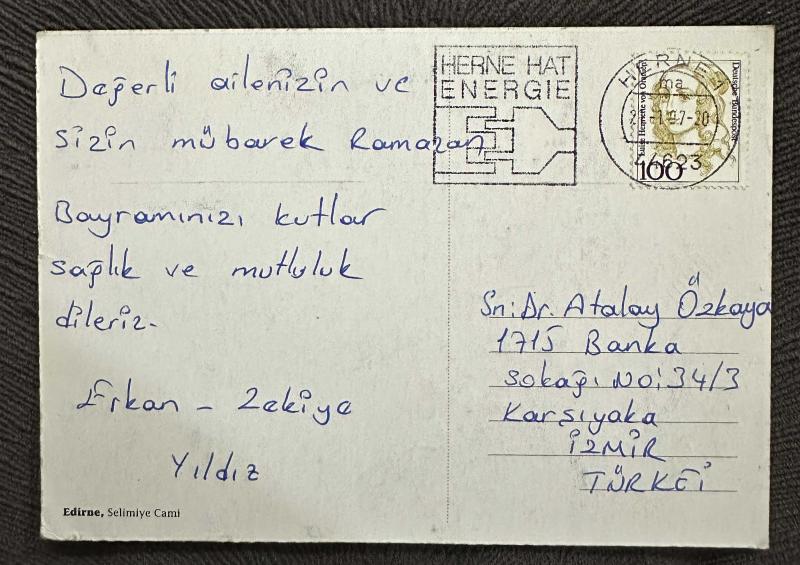 Değerli ailenizin ve
sizin mübarek Ramazan
Bayramınızı kutlar
sağlık ve mutluluk
dileriz.
Erkan - Zekiye
Yıldız
Edirne, Selimiye Cami
HERNE HAT
ENERGIE
HERNE 1
ma
44623
Deutsche Bundespost
100
Sn: Dr. Atalay Özkaya
1715 Banka
sokağı No: 34/3
Karşıyaka
İZMİR
TÜRKEİ